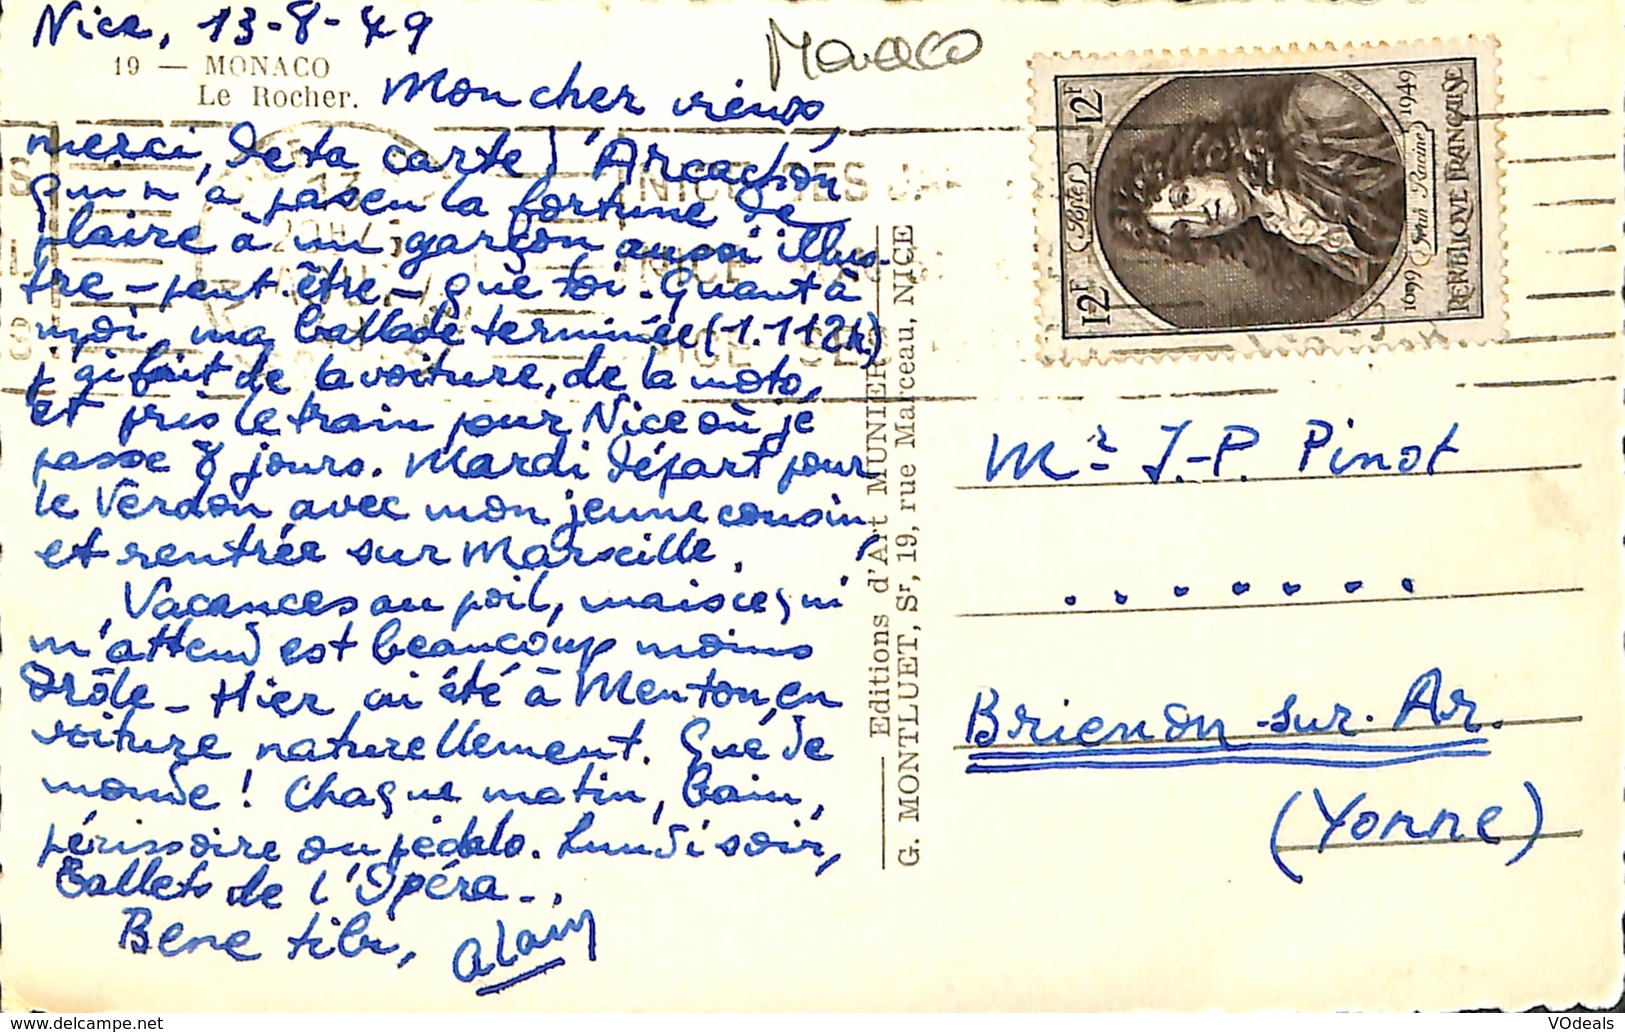 Nice, 13-8-49
Monaco
19 — MONACO
Le Rocher.
Mon cher vieux,
merci, de ta carte d'Arcachon
qui n'a pas eu la fortune de
plaire à un garçon aussi illus-
tre - peut-être - que toi. Quant à
moi, ma ballade terminée (1.112k.)
j'ai fait de la voiture, de la moto,
et pris le train pour Nice où je
passe 8 jours. Mardi départ pour
le Verdon avec mon jeune cousin,
et rentrée sur Marseille.
Vacances au poil, mais ce qui
m'attend est beaucoup moins
drôle - Hier ai été à Menton, en
voiture naturellement. Que de
monde ! Chaque matin, bain,
périssoire ou pédalo. Lundi soir,
Ballets de l'Opéra -.
Bene tibi,
Alain
Editions d'Art MUNIER
G. MONTLUET, Sr, 19, rue Marceau, NICE
12F
12F
1699 Jean Racine 1949
REPUBLIQUE FRANÇAISE
Postes
Mr J.-P. Pinot
.......
Brienon-sur-Ar.
(Yonne)
http://www.delcampe.net
VOdeals